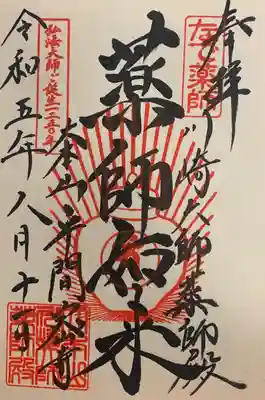 奉拝
なで薬師
川崎大師薬師殿
薬師如来
大本山平間密寺
弘法大師ご誕生一二五〇年
令和五年八月十一日